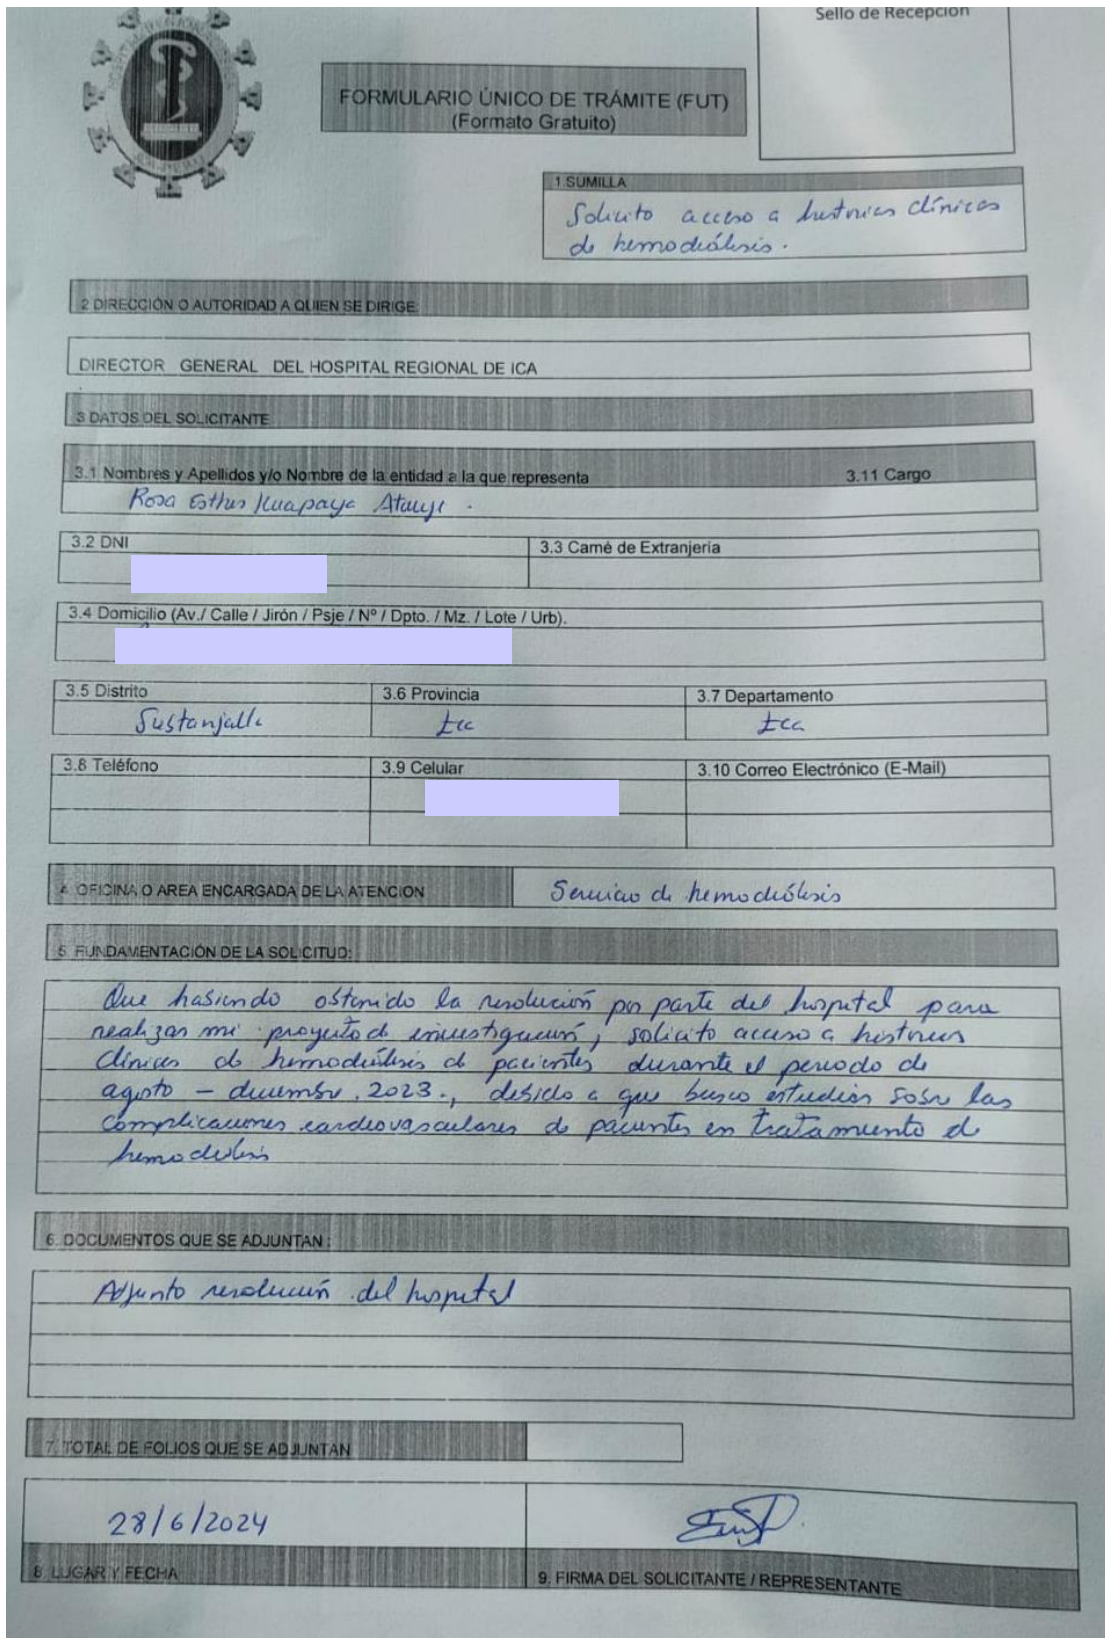 Sello de Recepción
FORMULARIO ÚNICO DE TRÁMITE (FUT)
(Formato Gratuito)
1 SUMILLA
Solicito acceso a historias clínicas
de hemodiálisis.
2 DIRECCIÓN O AUTORIDAD A QUIEN SE DIRIGE
DIRECTOR GENERAL DEL HOSPITAL REGIONAL DE ICA
3 DATOS DEL SOLICITANTE
3.1 Nombres y Apellidos y/o Nombre de la entidad a la que representa 3.11 Cargo
Rosa Esther Huapaya
3.2 DNI 3.3 Carné de Extranjería
3.4 Domicilio (Av./ Calle / Jirón / Psje / Nº / Dpto. / Mz. / Lote / Urb).
3.5 Distrito 3.6 Provincia 3.7 Departamento
Subtanjalla Ica Ica
3.8 Teléfono 3.9 Celular 3.10 Correo Electrónico (E-Mail)
4. OFICINA O AREA ENCARGADA DE LA ATENCION Servicio de hemodiálisis
5. FUNDAMENTACIÓN DE LA SOLICITUD:
Que habiendo obtenido la resolución por parte del hospital para
realizar mi proyecto de investigación, solicito acceso a historias
clínicas de hemodiálisis de pacientes durante el periodo de
agosto – diciembre 2023., debido a que busco estudiar sobre las
complicaciones cardiovasculares de pacientes en tratamiento de
hemodiálisis
6. DOCUMENTOS QUE SE ADJUNTAN :
Adjunto resolución del hospital
7. TOTAL DE FOLIOS QUE SE ADJUNTAN
28/6/2024
8. LUGAR Y FECHA 9. FIRMA DEL SOLICITANTE / REPRESENTANTE